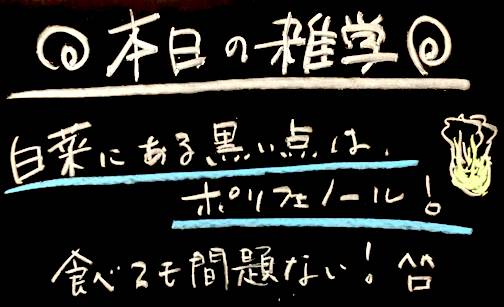 本日の雑学
白菜にある黒い点は、
ポリフェノール!
食べても問題ない!